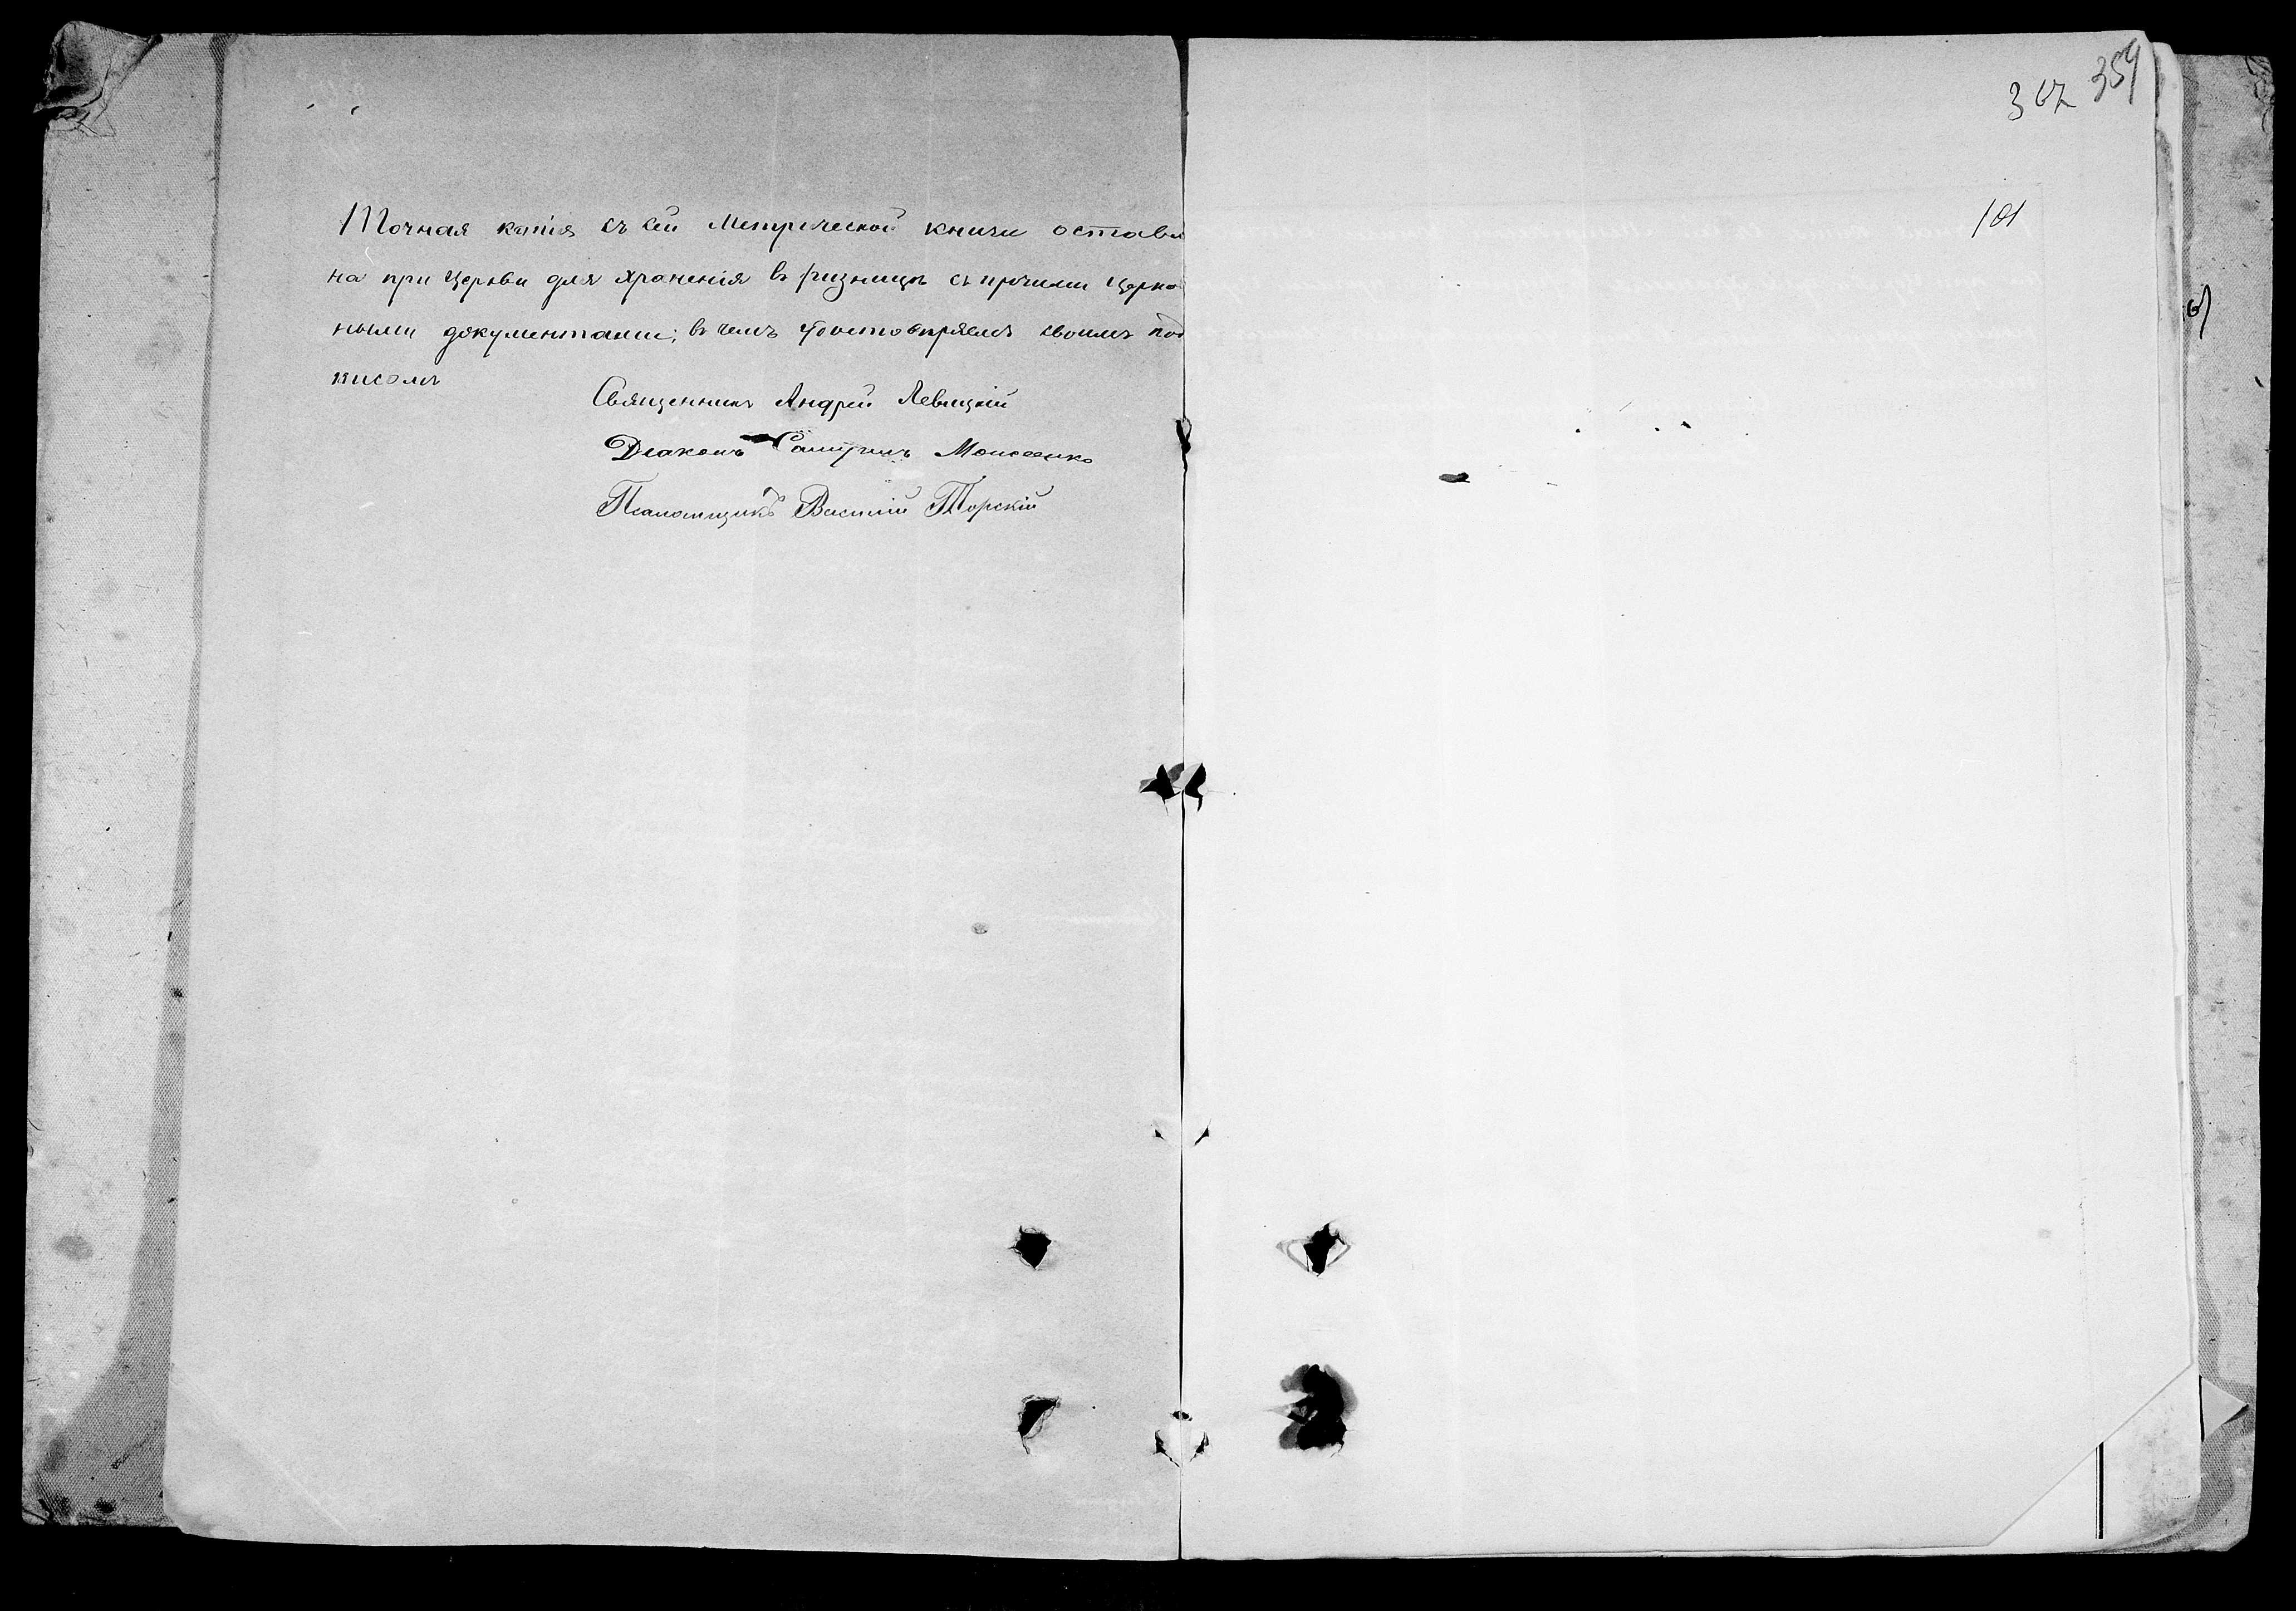 Точная копія съ сей Метрической книги оставле
на при Церкви для храненія въ ризницѣ съ прочими Церко
ными документами; въ чемъ удостовѣряемъ своимъ под
писомъ
Священникъ Андрей Левицкій
Діаконъ Моисеенко
Псаломщикъ Василій Торскій
367 359
101